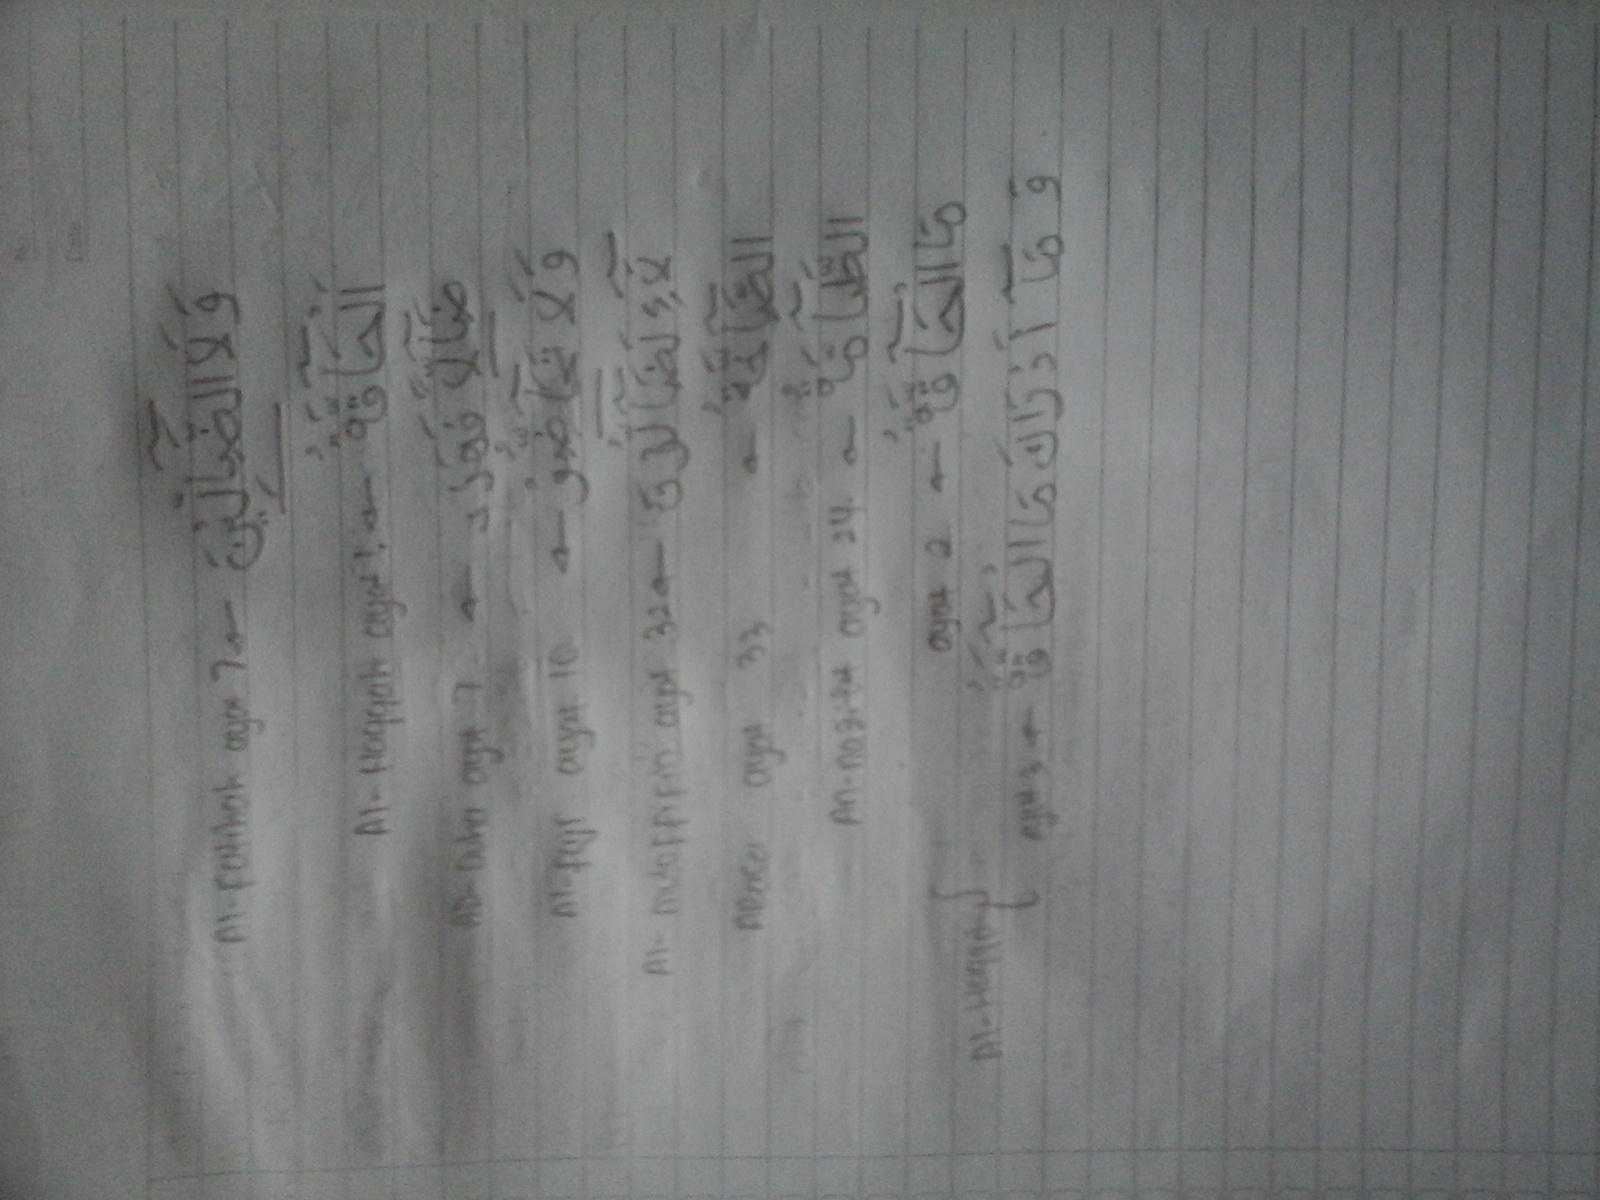 No.
Date
Al-Fatihah ayat 7 ← وَلَا الضَّآلِّيْنَ
Al-Haqqah ayat 1. ← اَلْحَآقَّةُ
Ad-Duha ayat 7 ← ضَآلًّا فَهَدَ
Al-Fajr ayat 10 ← وَلَا تَحٰۤضُّوْ
Al-Mutaffifin ayat 32 ← لَاۤءِ لَضَآلُّوْنَ
Abasa ayat 33 ← الصَّآخَّةُ
An-nazi'at ayat 24 ← الطَّآمَّةُ
Al-Haqqah { ayat 2 ← مَا الْحَآقَّةُ
ayat 3 ← وَمَآ أَدْرَاكَ مَا الْحَآقَّةُ